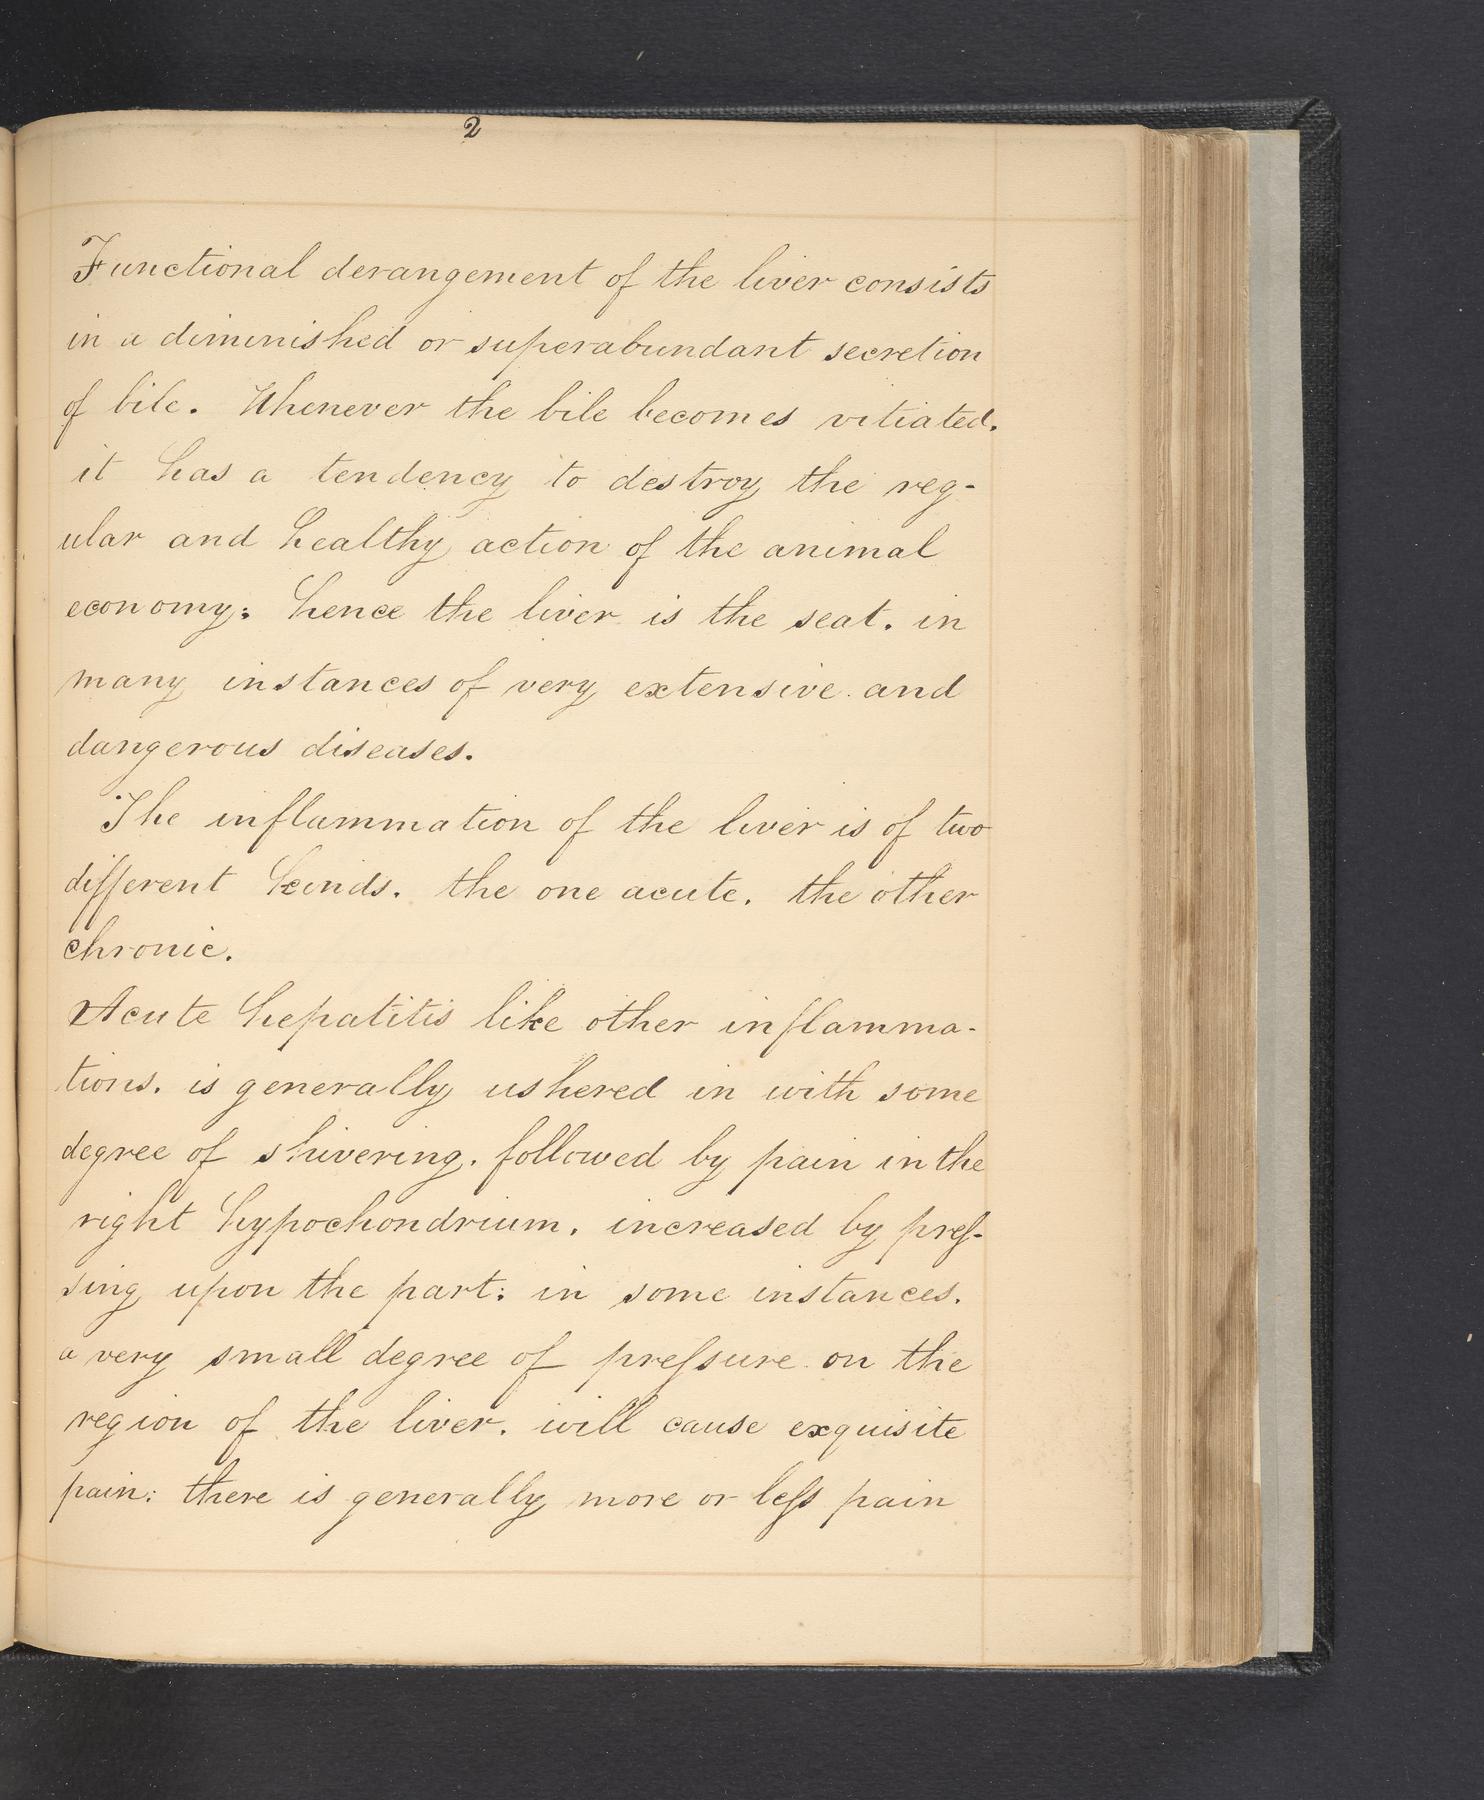 2
Functional derangement of the liver consists
in a diminished or superabundant secretion
of bile. Whenever the bile becomes vitiated.
it has a tendency to destroy the reg-
ular and healthy action of the animal
economy; hence the liver is the seat. in
many instances of very extensive and
dangerous diseases.
The inflammation of the liver is of two
different kinds. the one acute. the other
chronic.
Acute hepatitis like other inflamma-
tions. is generally ushered in with some
degree of shivering. followed by pain in the
right hypochondrium. increased by preſ-
sing upon the part; in some instances.
a very small degree of preſsure on the
region of the liver. will cause exquisite
pain: there is generally more or leſs pain